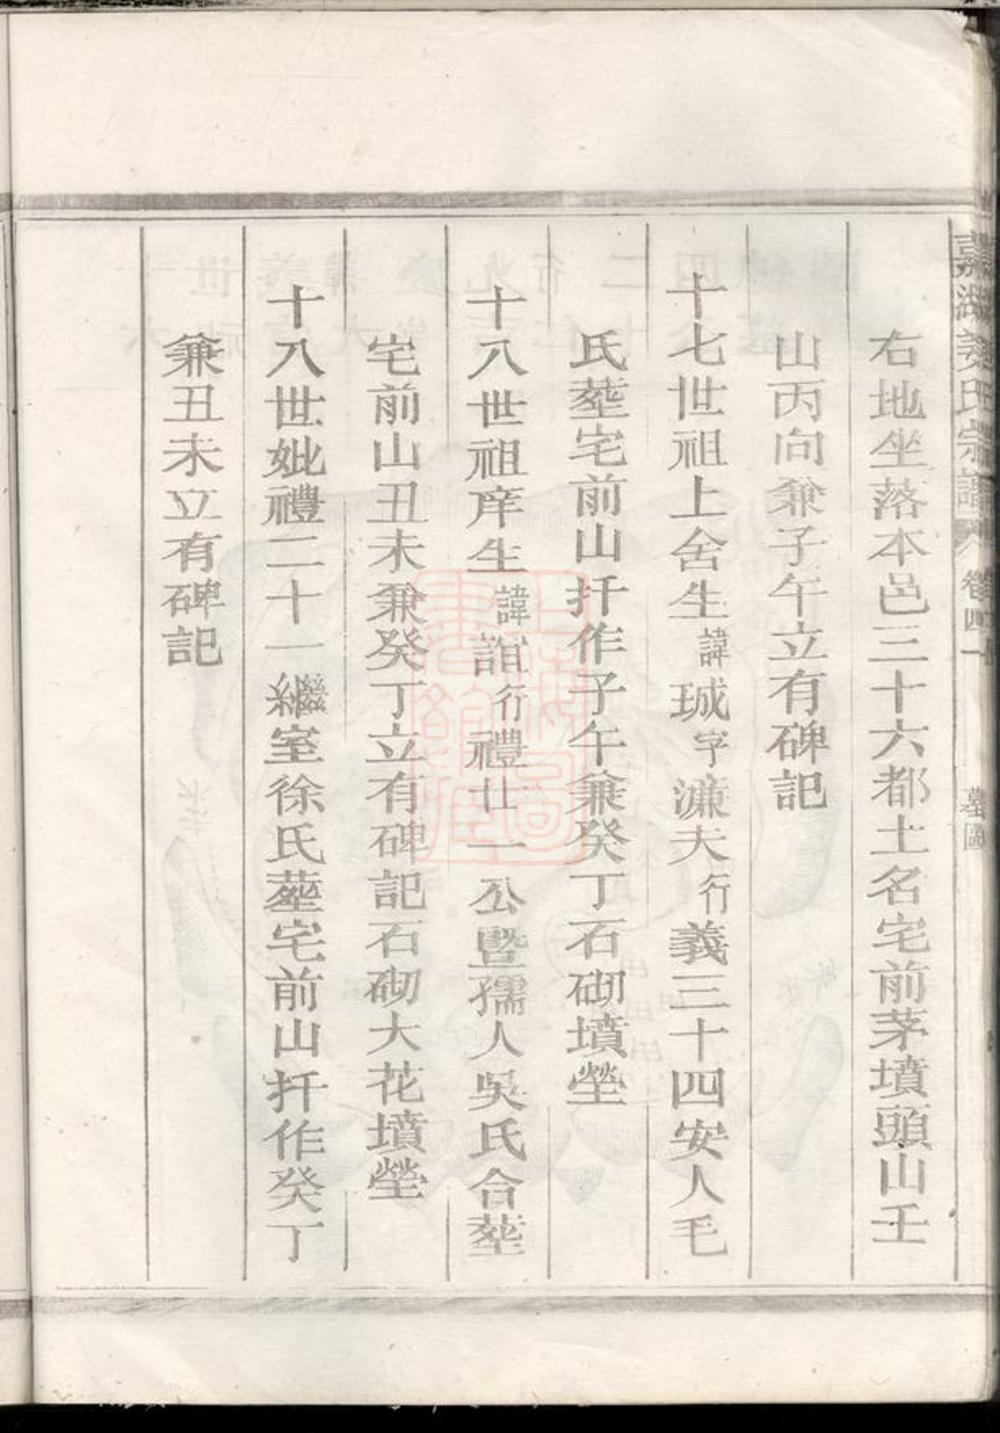 嘉湖姜氏宗譜 卷四十 墓圖
右地坐落本邑三十六都土名宅前茅墳頭山壬
山丙向兼子午立有碑記
十七世祖上舍生諱珹字濂夫行義三十四安人毛
氏塟宅前山扦作子午兼癸丁石砌墳塋
十八世祖庠生諱誼行禮廿一公暨孺人吳氏合塟
宅前山丑未兼癸丁立有碑記石砌大花墳塋
十八世妣禮二十一繼室徐氏塟宅前山扦作癸丁
兼丑未立有碑記